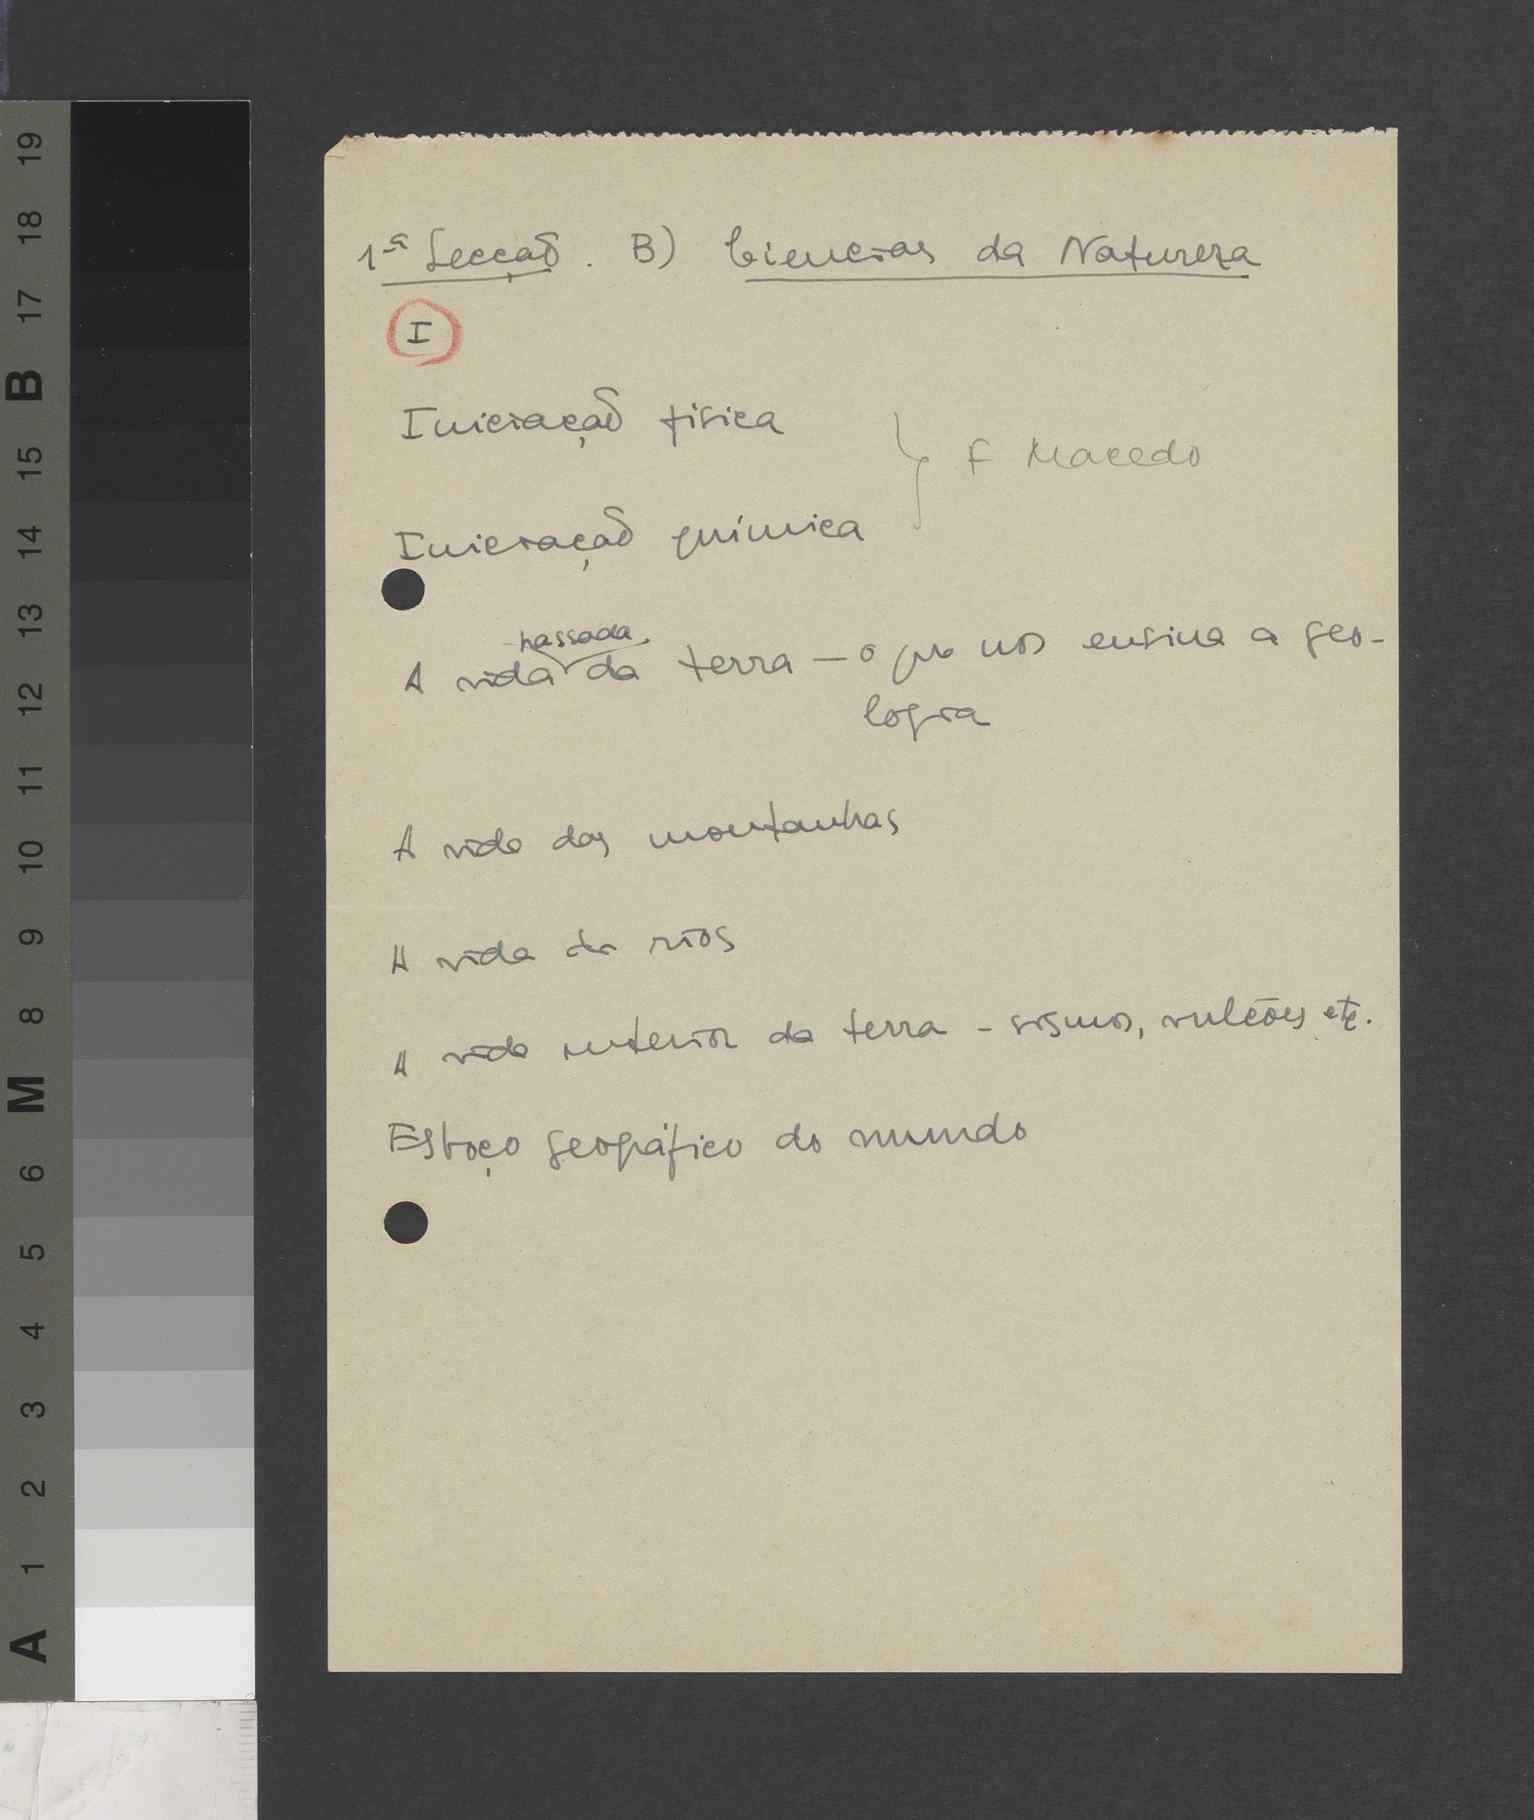 1ª Secção. B) Ciencias da Natureza
I
Iniciação fisica
F Macedo
Iniciação química
passada
A vida da terra — o que nos ensina a geo-
logia
A vida das montanhas
A vida dos rios
A vida interior da terra - sismos, vulcões etc.
Esboço geográfico do mundo
19
18
17
B
15
14
13
12
11
10
9
8
M
6
5
4
3
2
1
A